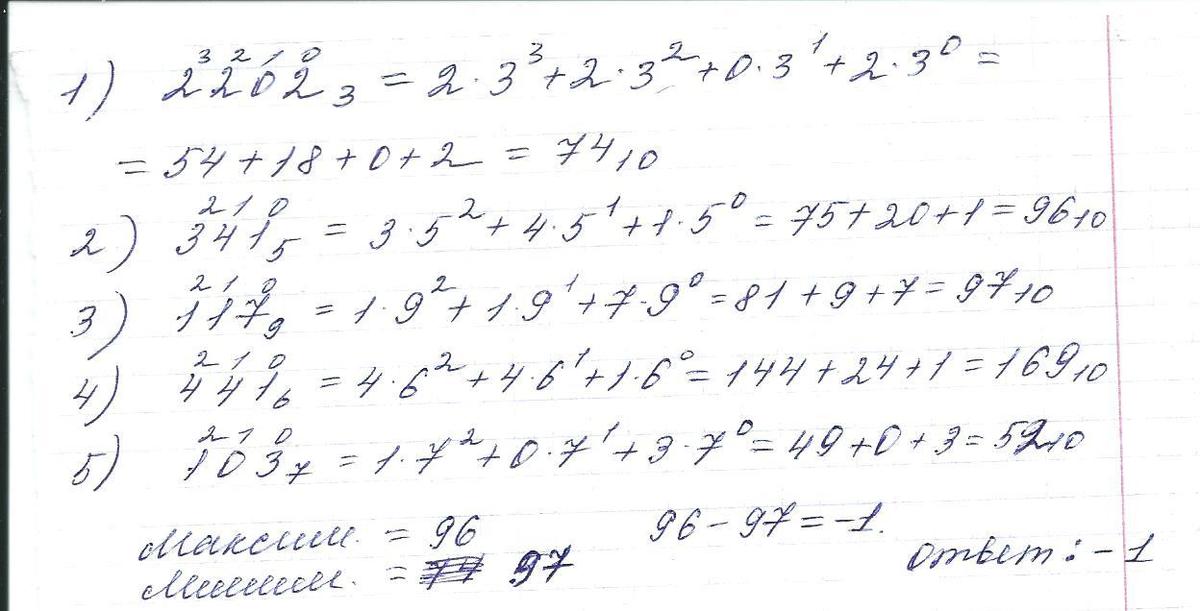 1) 2³2²0¹2⁰₃ = 2·3³+2·3²+0·3¹+2·3⁰=
=54+18+0+2 = 74₁₀
2) 3²4¹1⁰₅ = 3·5²+4·5¹+1·5⁰=75+20+1=96₁₀
3) 1²1¹7⁰₉ = 1·9²+1·9¹+7·9⁰=81+9+7=97₁₀
4) 4²4¹1⁰₆ =4·6²+4·6¹+1·6⁰=144+24+1=169₁₀
5) 1²0¹3⁰₇ =1·7²+0·7¹+3·7⁰=49+0+3=52₁₀
Максим. = 96 96-97=-1.
Миним. = 97 Ответ: -1